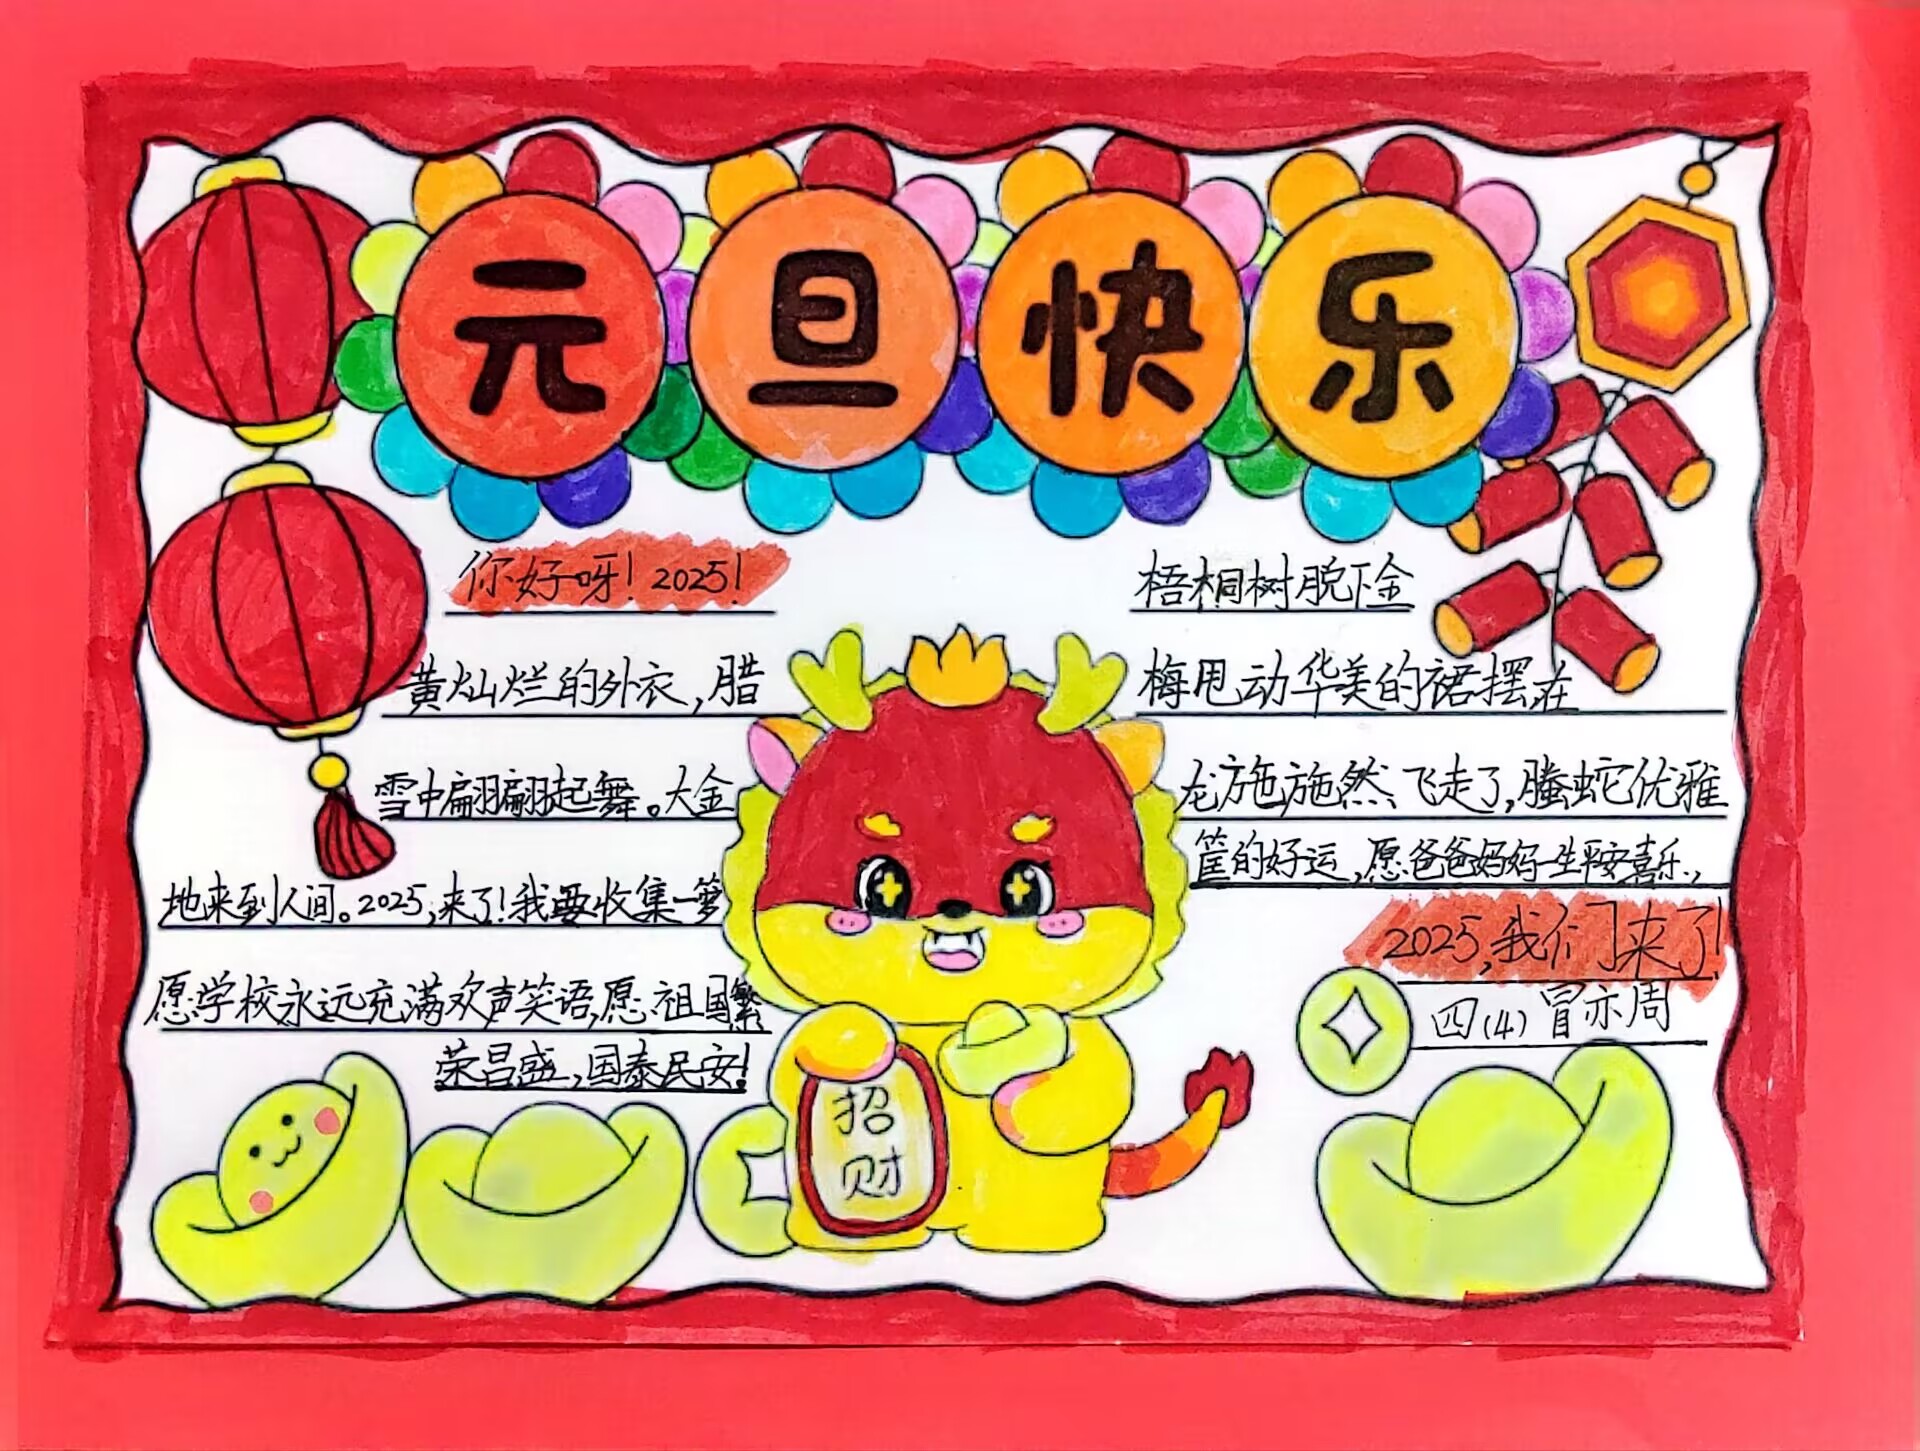 元旦快乐
你好呀！2025！
梧桐树脱下金
黄灿烂的外衣，腊
梅甩动华美的裙摆在
雪中翩翩起舞。大金
龙施施然飞走了，螣蛇优雅
地来到人间。2025，来了！我要收集一箩
筐的好运，愿爸爸妈妈一生平安喜乐，
愿学校永远充满欢声笑语，愿祖国繁
荣昌盛，国泰民安！
2025，我们来了！
四(4) 冒亦周
招
财